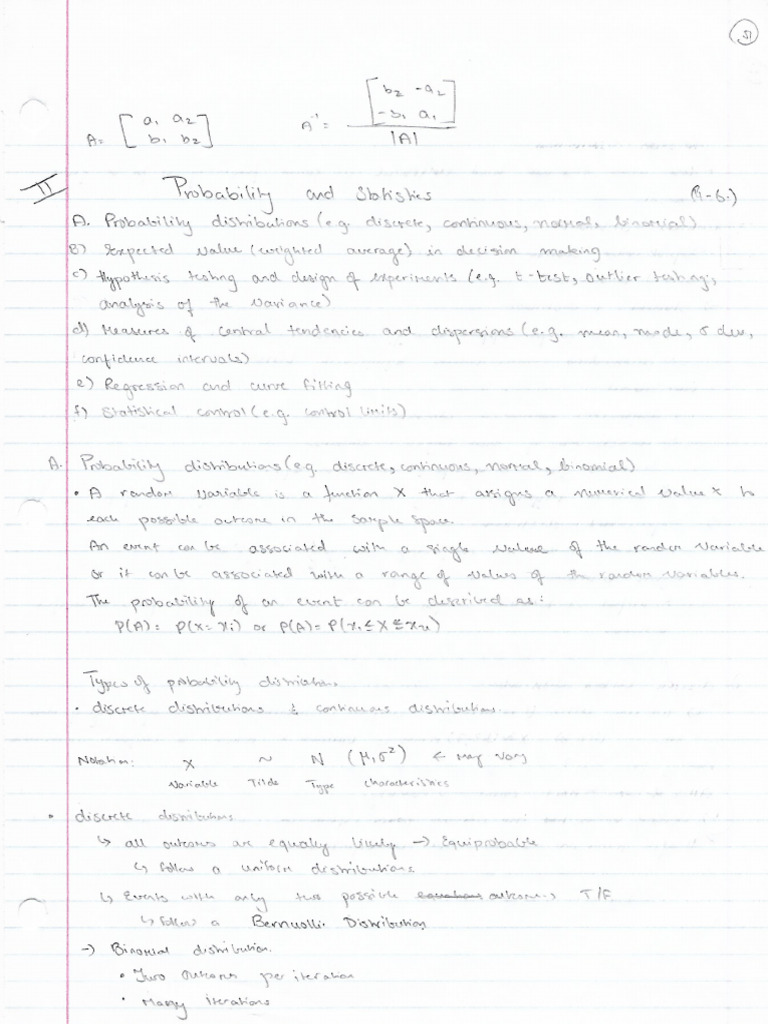 51
A = [ a₁ a₂ ; b₁ b₂ ]   A⁻¹ = [ b₂ -a₂ ; -b₁ a₁ ] / |A|
II Probability and Statistics
A. Probability distributions (e.g. discrete, continuous, normal, binomial)
B) Expected value (weighted average) in decision making
c) Hypothesis testing and design of experiments (e.g. t-test, outlier testing,
analysis of the variance)
d) Measures of central tendencies and dispersions (e.g. mean, mode, σ dev,
confidence intervals)
e) Regression and curve fitting
f) Statistical control (e.g. control limits)
A. Probability distributions (e.g. discrete, continuous, normal, binomial)
• A random variable is a function X that assigns a numerical value x to
each possible outcome in the sample space.
An event can be associated with a single value of the random variable
or it can be associated with a range of values of the random variables.
The probability of an event can be described as:
P(A) = P(x = xᵢ) or P(A) = P(xᵢ ≤ X ≤ xᵤ)
Types of probability distributions
• discrete distributions & continuous distributions.
Notation: X ~ N (μ, σ²) ← may vary
Variable Tilde Type characteristics
• discrete distributions
↳ all outcomes are equally likely → Equiprobable
↳ follow a uniform distributions
↳ Events with only two possible outcomes, T/F
↳ follow a Bernuolli Distribution
→ Binomial distribution.
• Two outcomes per iteration
• Many iterations